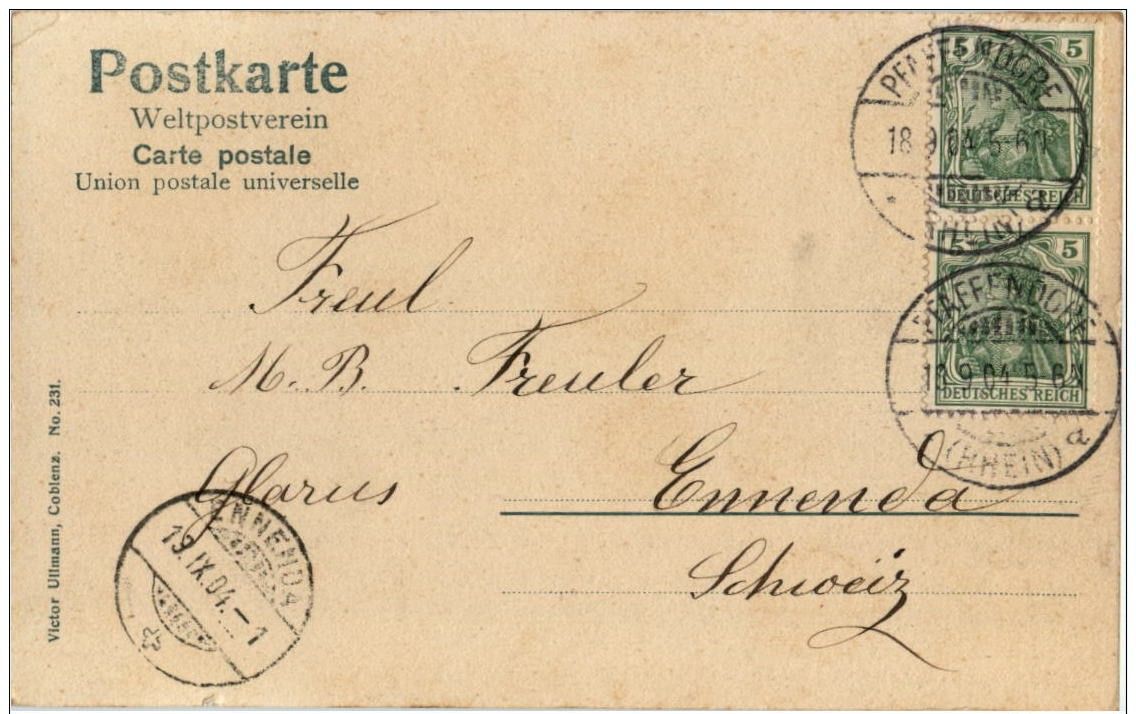 Postkarte
Weltpostverein
Carte postale
Union postale universelle
5 5
DEUTSCHES REICH
PFAFFENDORF
18 9 04 5-6N
(RHEIN) a
5 5
DEUTSCHES REICH
PFAFFENDORF
18 9 04 5-6N
(RHEIN) a
Freul
M. B. Freuler
Glarus Ennenda
Schweiz
ENNENDA
19.IX.04.–1
Victor Ullmann, Coblenz. No. 231.